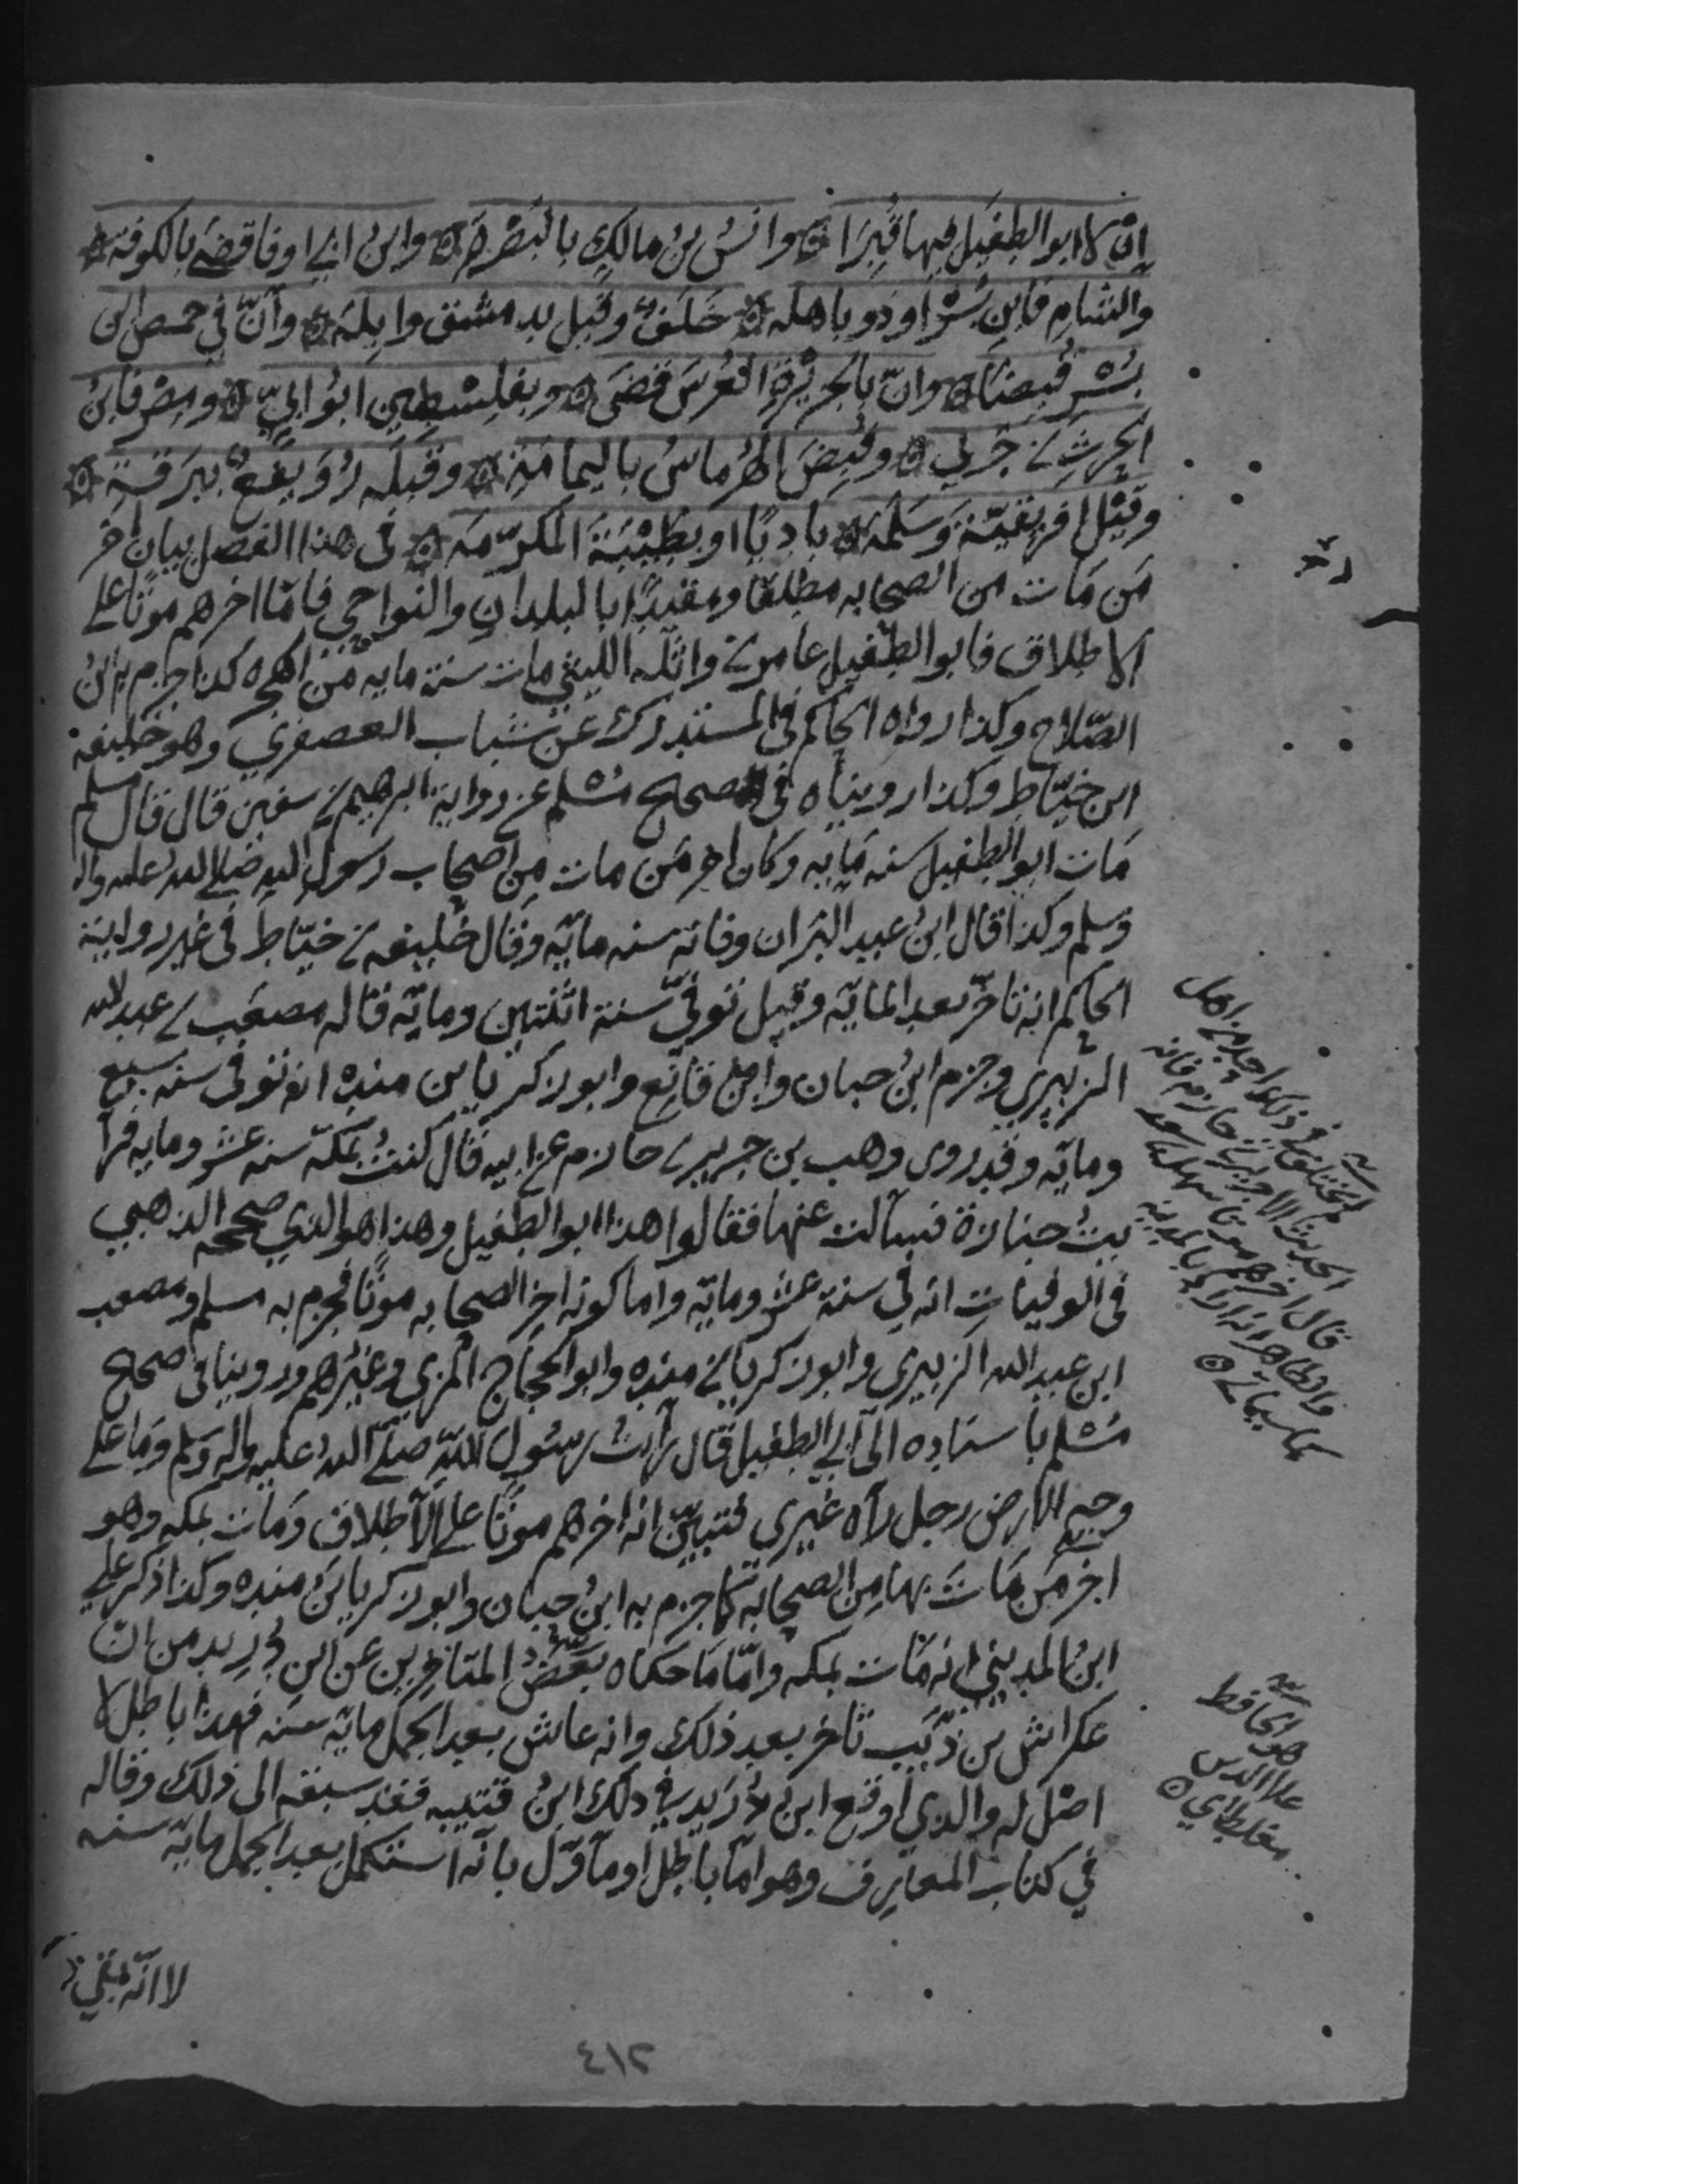 ان لا ابو الطفيل فيها قبرا ۞ وانس بن مالك بالبصرة ۞ وابن ابي اوفا قضى بالكوفة ۞
والشام فابن بسر او ذو باهله ۞ خلف وقيل بدمشق واثلة ۞ وان في حمص ابن
بسر قبضا ۞ وان بالجزيرة العرس قضى ۞ وبفلسطين ابو ابي ۞ ومصر فابن
الحرث بن جزي ۞ وقبض الهرماس باليمامة ۞ وقبله رويفع ببرقة ۞
وقيل افريقية وسلمة ۞ باديا او بطيبة المكرمه ۞ في هذا الفصل بيان اخر
من مات من الصحابه مطلقا ومقيدا بالبلدان والنواحي فاما اخرهم موتا على
الاطلاق فابو الطفيل عامر بن واثلة الليثي مات سنة مايه من الهجره كذا جزم به ابن
الصلاح وكذا رواه الحاكم في المستدرك عن شباب العصفري وهو خليفة
ابن خياط وكذا رويناه في صحيح مسلم عن رواية ابرهيم بن سفين قال قال مسلم
مات ابو الطفيل سنه مايه وكان اخر من مات من اصحاب رسول الله صلى الله عليه واله
وسلم وكذا قال ابن عبد البر ان وفاته سنه مائة وقال خليفه بن خياط في غير رواية
الحاكم انه تاخر بعد المائة وقيل توفي سنة اثنتين ومائة قاله مصعب بن عبد الله
الزبيري وجزم ابن حبان وابن قانع وابو زكريا بن منده انه توفي سنه سبع
ومائة وقد روى وهب بن جرير بن حازم عن ابيه قال كنت بمكة سنه عشر ومايه فرأ
يت جنازة فسألت عنها فقالوا هذا ابو الطفيل وهذا هو الذي صححه الذهبي
في الوفيات انه في سنة عشر ومائة واما كونه اخر الصحابه موتا فجزم به مسلم ومصعب
ابن عبد الله الزبيري وابو زكريا بن منده وابو الحجاج المزي وغيرهم وروينا في صحيح
مسلم باسناده الى ابي الطفيل قال رأيت رسول الله صلى الله عليه واله وسلم وما على
وجه الارض رجل رآه غيري فتبين انه اخرهم موتا على الاطلاق ومات بمكه وهو
اخر من مات بها من الصحابة كما جزم به ابن حبان وابو زكريا بن منده وكذا ذكر علي
ابن المديني انه مات بمكه واما ما حكاه بعض المتاخرين عن ابن دريد من ان
عكراش بن ذؤيب تاخر بعد ذلك وانه عاش بعد الجمل مائة سنه فهذا باطل لا
اصل له والذي اوقع ابن دريد في ذلك ابن قتيبه فقد سبقه الى ذلك وقاله
في كتاب المعارف وهو اما باطل او مأول بانه استكمل بعد الجمل مائة سنه
لا انه بقي
لم يختلف في ذلك احد من اهل
الحديث الا جرير بن حازم فانه
قال اخرهم موتا سهل بن سعد
والظاهر انه اراد بالمدينه
كما سياتي ۞
هو الحافظ
علا الدين
مغلطاي ۞
٤١٢